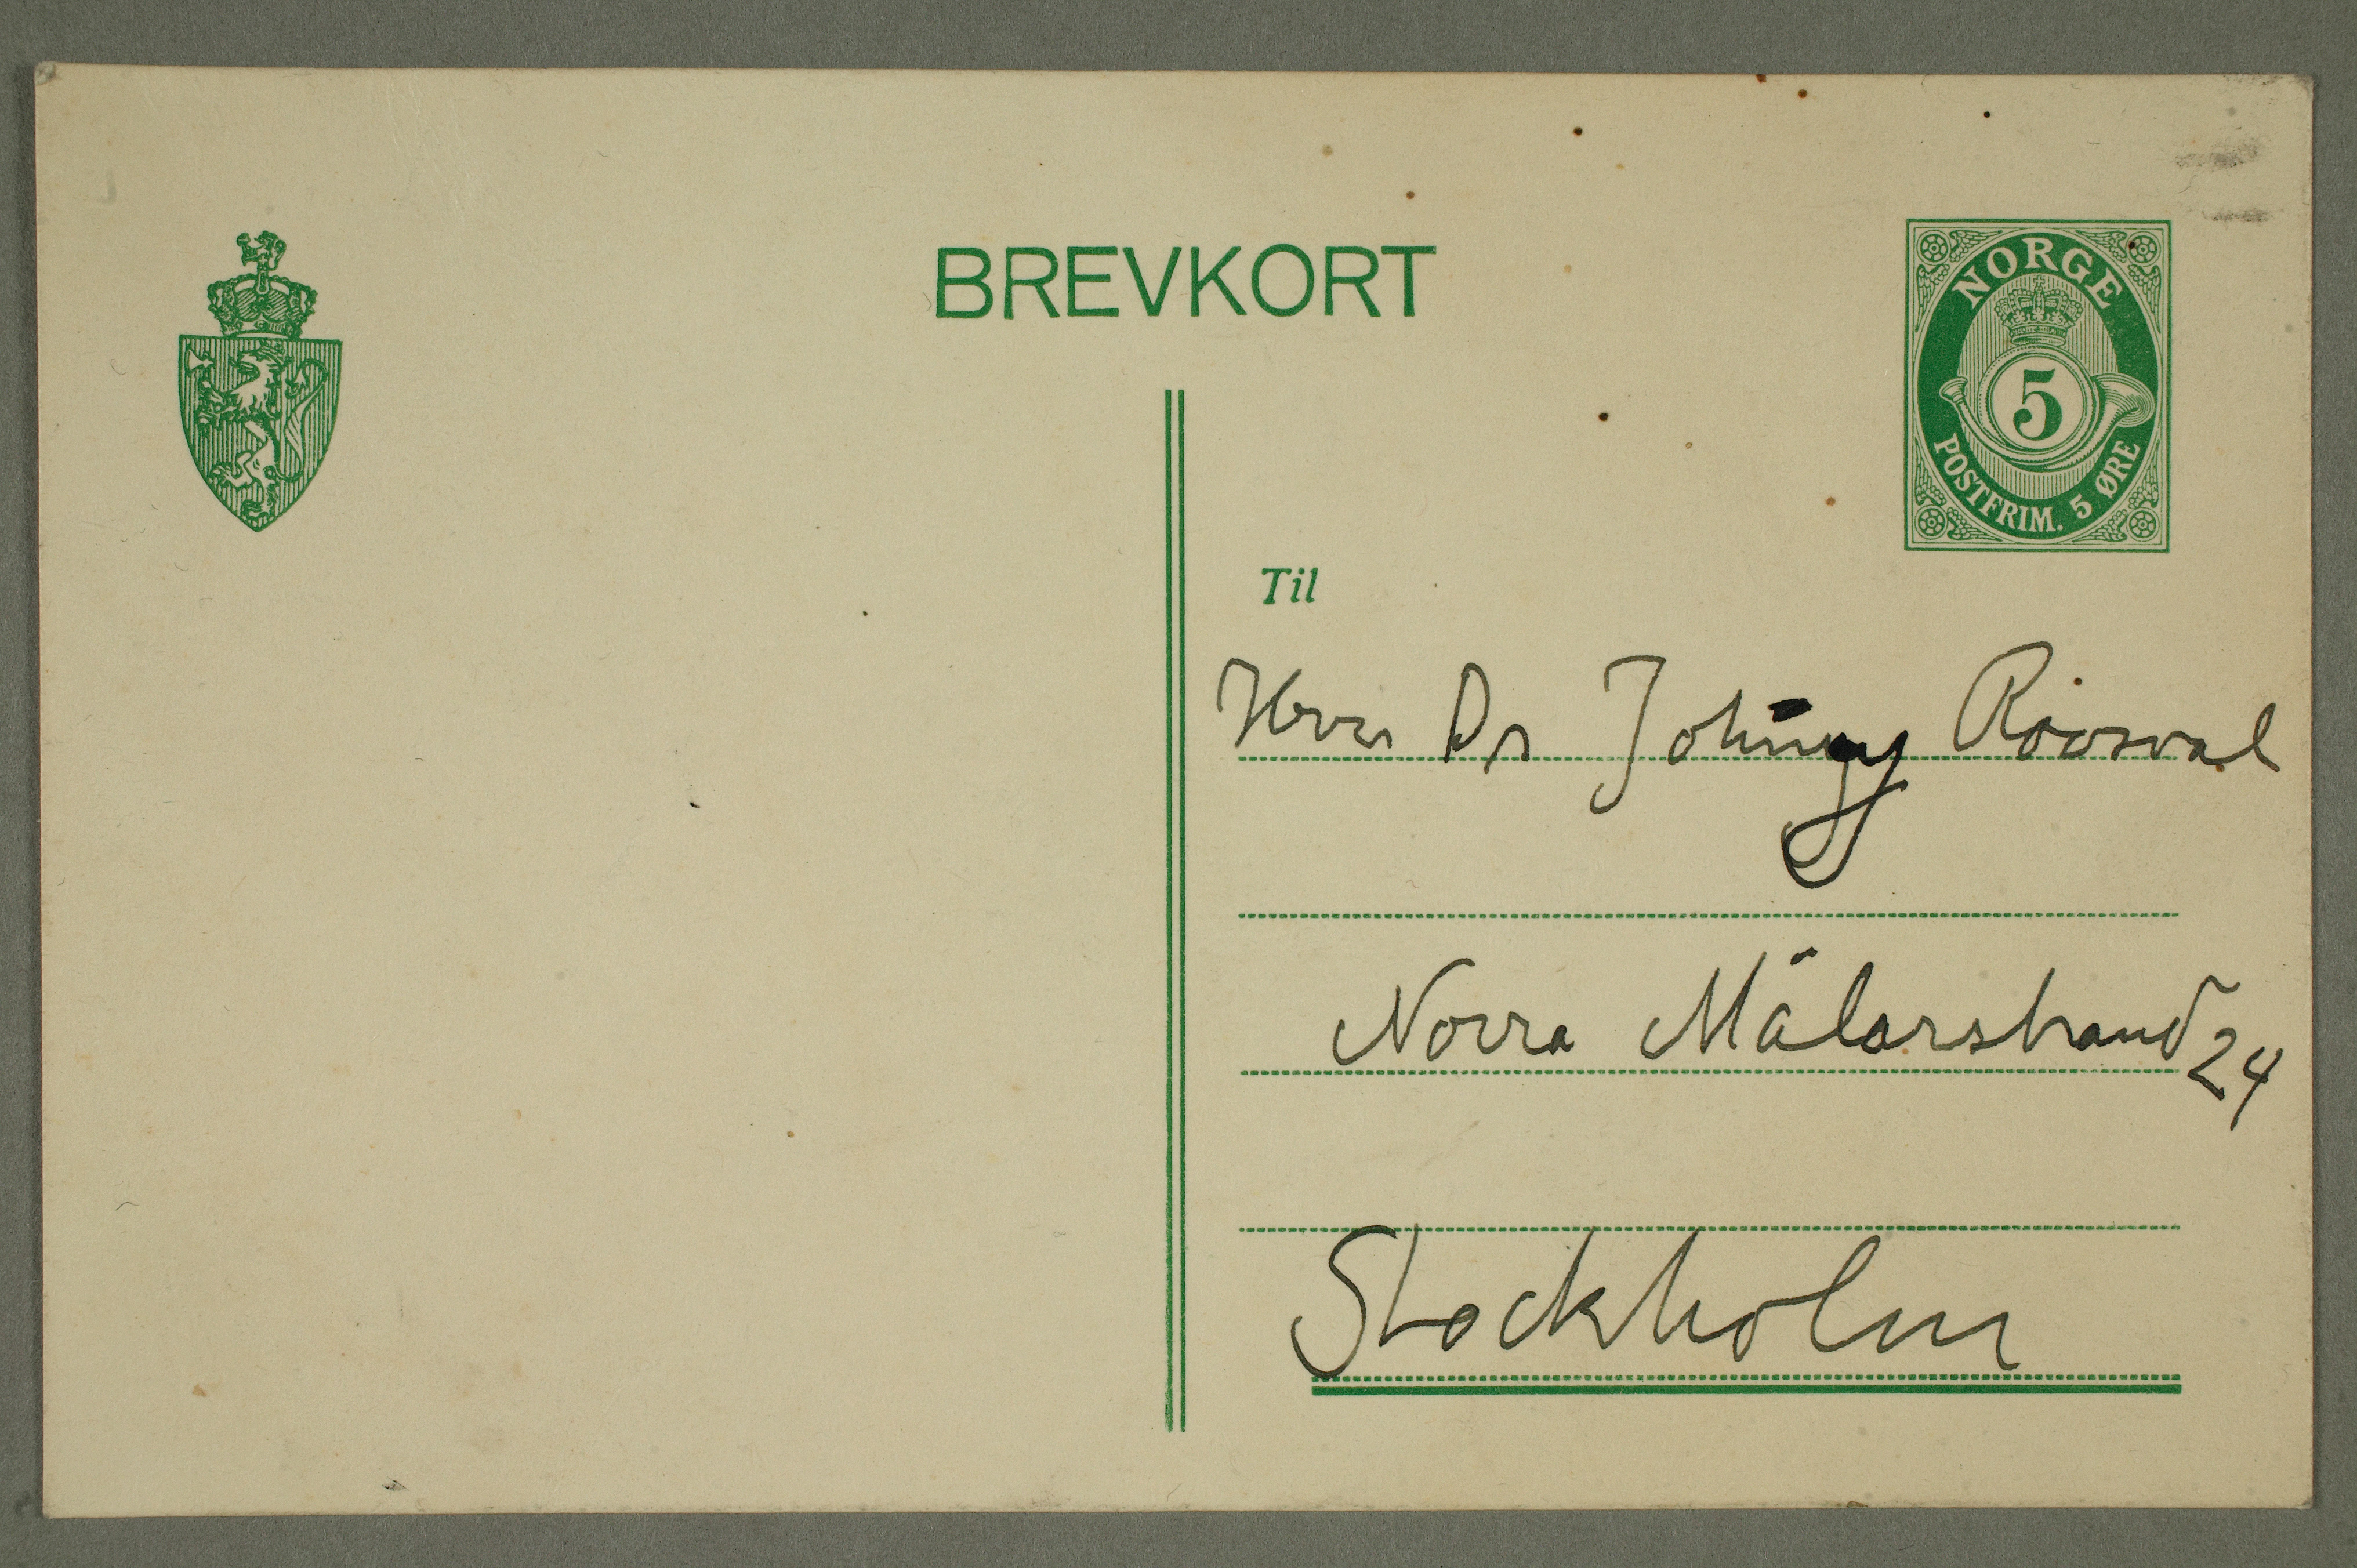 BREVKORT
NORGE
5
POSTFRIM. 5 ØRE
Til
Herr Dr Johnny Roosval
Norra Mälarstrand 24
Stockholm